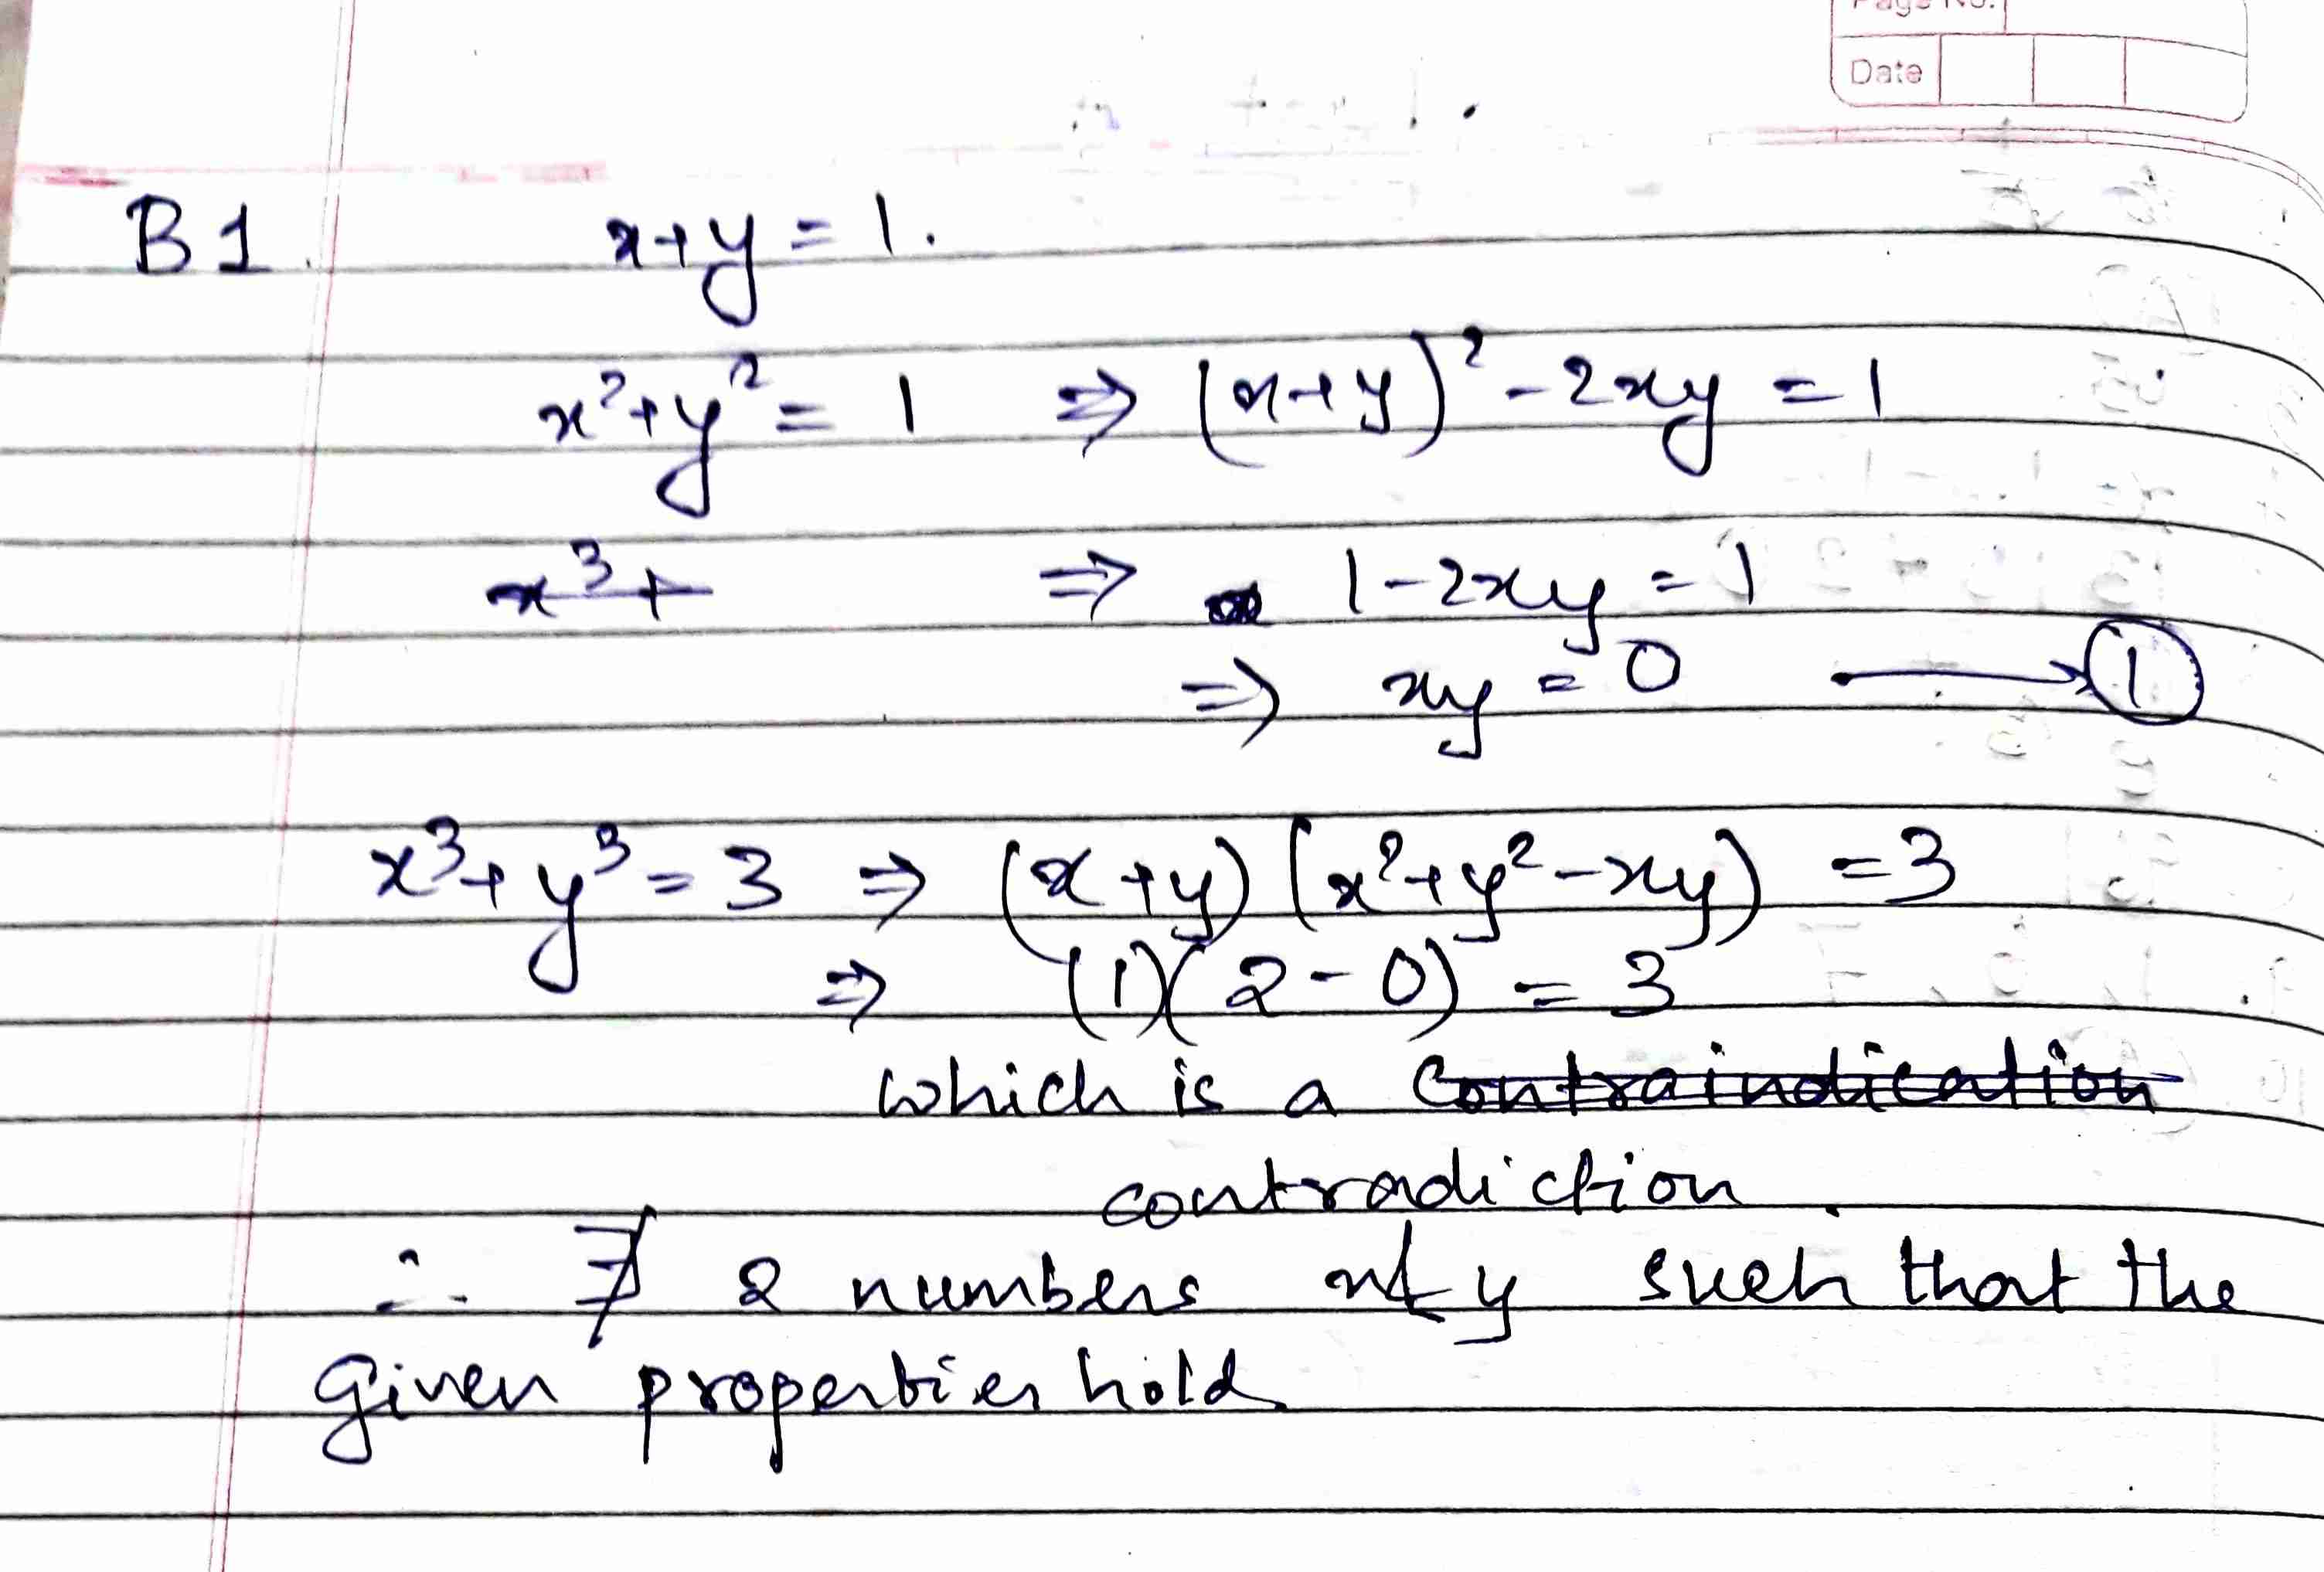 Page No.
Date
B1. x+y = 1.
x²+y² = 1 ⇒ (x+y)² - 2xy = 1
x³+ ⇒ 1-2xy = 1
⇒ xy = 0 → 1
x³+y³ = 3 ⇒ (x+y)(x²+y²-xy) = 3
⇒ (1)(2-0) = 3
which is a Contraindication
contradiction.
∴ ∄ 2 numbers x & y such that the
given properties hold